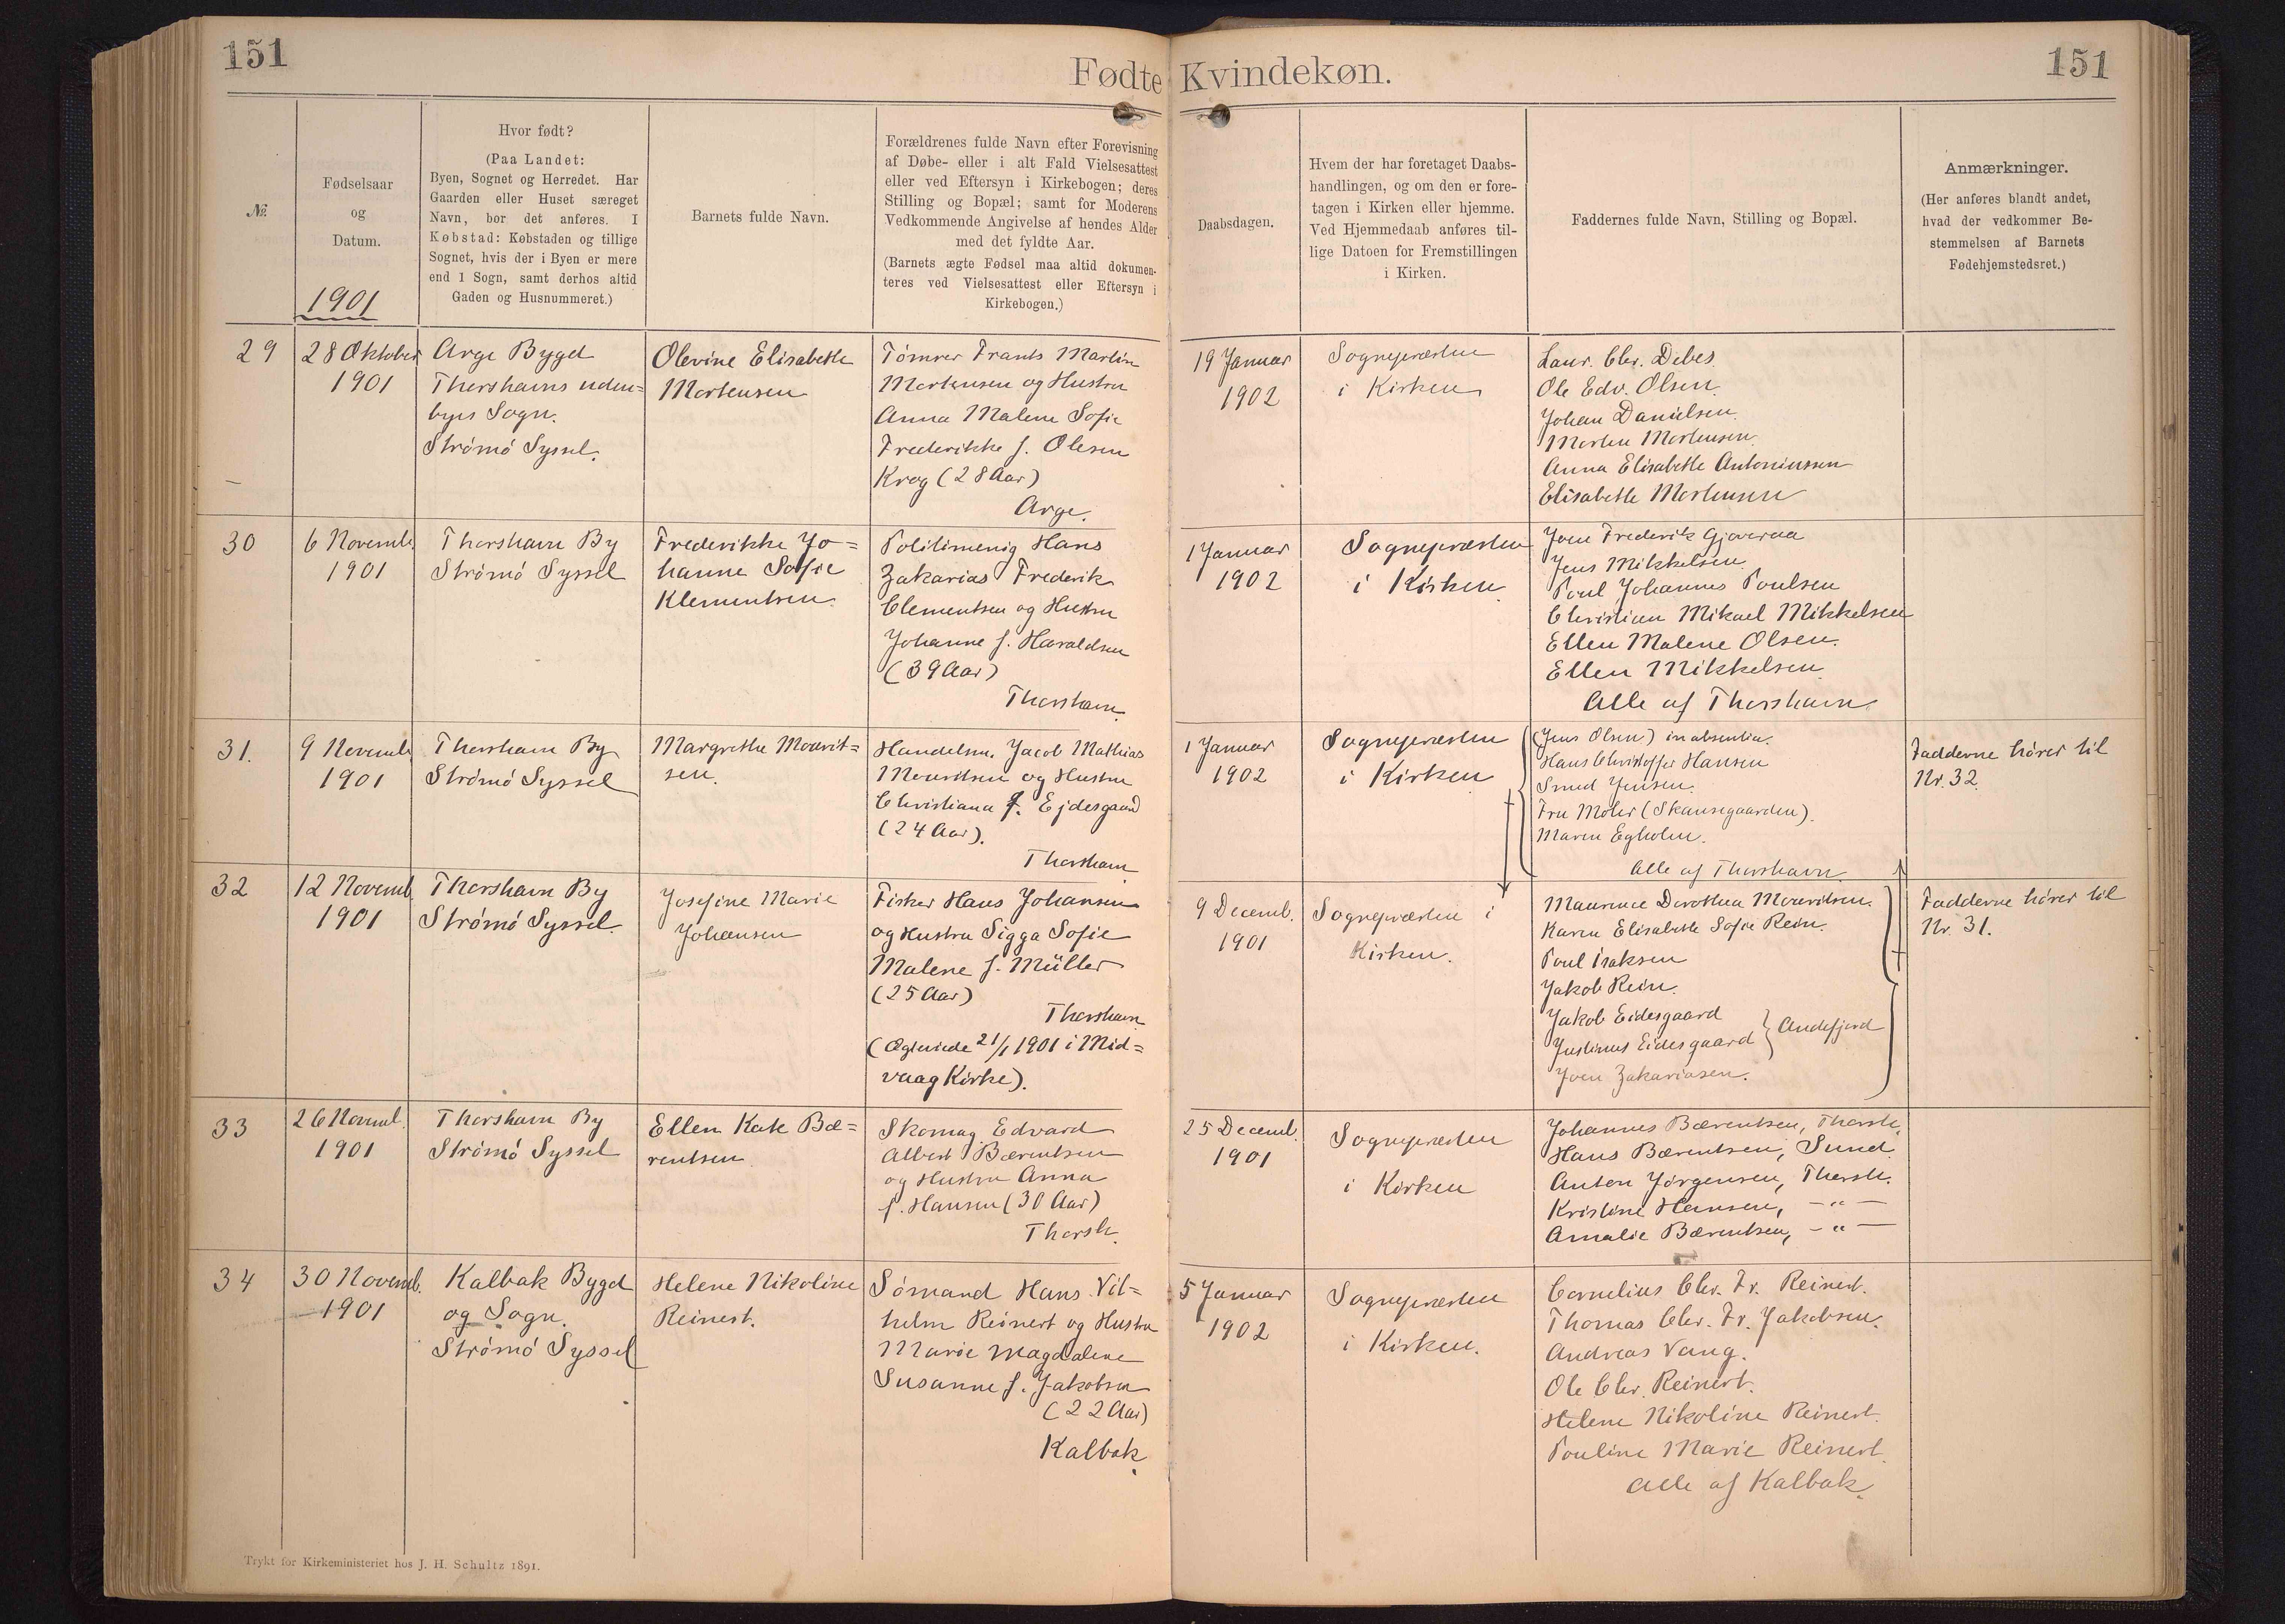 151
151
Fødte Kvindekøn.
№.
Fødselsaar
og
Datum.
1901
Hvor født?
(Paa Landet:
Byen, Sognet og Herredet. Har
Gaarden eller Huset særeget
Navn, bør det anføres. I
Købstad: Købstaden og tillige
Sognet, hvis der i Byen er mere
end 1 Sogn, samt derhos altid
Gaden og Husnummeret.)
Barnets fulde Navn.
Forældrenes fulde Navn efter Forevisning
af Døbe- eller i alt Fald Vielsesattest
eller ved Eftersyn i Kirkebogen; deres
Stilling og Bopæl; samt for Moderens
Vedkommende Angivelse af hendes Alder
med det fyldte Aar.
(Barnets ægte Fødsel maa altid dokumen-
teres ved Vielsesattest eller Eftersyn i
Kirkebogen.)
Daabsdagen.
Hvem der har foretaget Daabs-
handlingen, og om den er fore-
tagen i Kirken eller hjemme.
Ved Hjemmedaab anføres til-
lige Datoen for Fremstillingen
i Kirken.
Faddernes fulde Navn, Stilling og Bopæl.
Anmærkninger.
(Her anføres blandt andet,
hvad der vedkommer Be-
stemmelsen af Barnets
Fødehjemstedsret.)
29
28 Oktober
1901
Arge Bygd
Thorshavns uden=
byes Sogn.
Strømø Syssel.
Olevine Elisabeth
Mortensen
Tømrer Frants Martin
Mortensen og Hustru
Anna Malene Sofie
Frederikke f. Olesen
Krog (28 Aar)
Arge.
19 Januar
1902
Sognepræsten
i Kirken
Laur. Chr. Debes.
Ole Edv. Olsen.
Johan Danielsen.
Morten Mortensen.
Anna Elisabeth Antoniussen
Elisabeth Mortensen
30
6 Novemb.
1901
Thorshavn By
Strømø Syssel
Frederikke Jo=
hanne Sofie
Klementsen.
Politimenig Hans
Zakarias Frederik
Clementsen og Hustru
Johanne f. Haraldsen
(39 Aar)
Thorshavn.
1 Januar
1902
Sognepræsten
i Kirken.
Joen Frederik Gjoveraa
Jens Mikkelsen.
Poul Johannes Poulsen
Christian Mikael Mikkelsen
Ellen Malene Olsen.
Ellen Mikkelsen.
Alle af Thorshavn.
31.
9 Novemb.
1901
Thorshavn By
Strømø Syssel
Margrethe Mouritsen=
sen.
Handelsm. Jacob Mathias
Mouritsen og Hustru
Christiana f. Ejdesgaard
(24 Aar).
Thorshavn
1 Januar
1902
Sognepræsten
i Kirken
(Jens Olsen) in absentia.
Hans Christoffer Hansen
Smed Jensen.
Fru Mohr (Skansegaarden).
Maren Egholm.
Alle af Thorshavn.
Fadderne hører til
Nr. 32.
32
12 Novemb.
1901
Thorshavn By
Strømø Syssel.
Josefine Marie
Johansen
Fisker Hans Johansen
og Hustru Sigga Sofie
Malene f. Müller
(25 Aar)
Thorshavn
(Ægteviede 21/1 1901 i Mid=
vaag Kirke).
9 Decemb.
1901
Sognepræsten i
Kirken.
Maurence Dorothea Mouritsen.
Karen Elisabeth Sofie Rein.
Poul Isaksen
Jakob Rein.
Jakob Eidesgaard
Justinus Eidesgaard } Andefjord
Joen Zakariasen.
Fadderne hører til
Nr. 31.
33
26 Novemb.
1901
Thorshavn By
Strømø Syssel
Ellen Kate Bæ=
rentsen
Skomag. Edvard
Albert Bærentsen
og Hustru Anna
f. Hansen (30 Aar)
Thorsh.
25 Decemb.
1901
Sognepræsten
i Kirken
Johannes Bærentsen, Thorsh.
Hans Bærentsen, Sund.
Anton Jørgensen, Thorsh.
Kristine Hansen, -"-
Amalie Bærentsen, -"-
34
30 Novemb.
1901
Kalbak Bygd
og Sogn.
Strømø Syssel
Helene Nikoline
Reinert.
Sømand Hans Vil=
helm Reinert og Hustru
Marie Magdalene
Susanne f. Jakobsen
(22 Aar)
Kalbak.
5 Januar
1902
Sognepræsten
i Kirken.
Cornelius Chr. Fr. Reinert.
Thomas Chr. Fr. Jakobsen.
Andreas Vang.
Ole Chr. Reinert.
Helene Nikoline Reinert.
Pouline Marie Reinert.
Alle af Kalbak.
Trykt for Kirkeministeriet hos J. H. Schultz 1891.